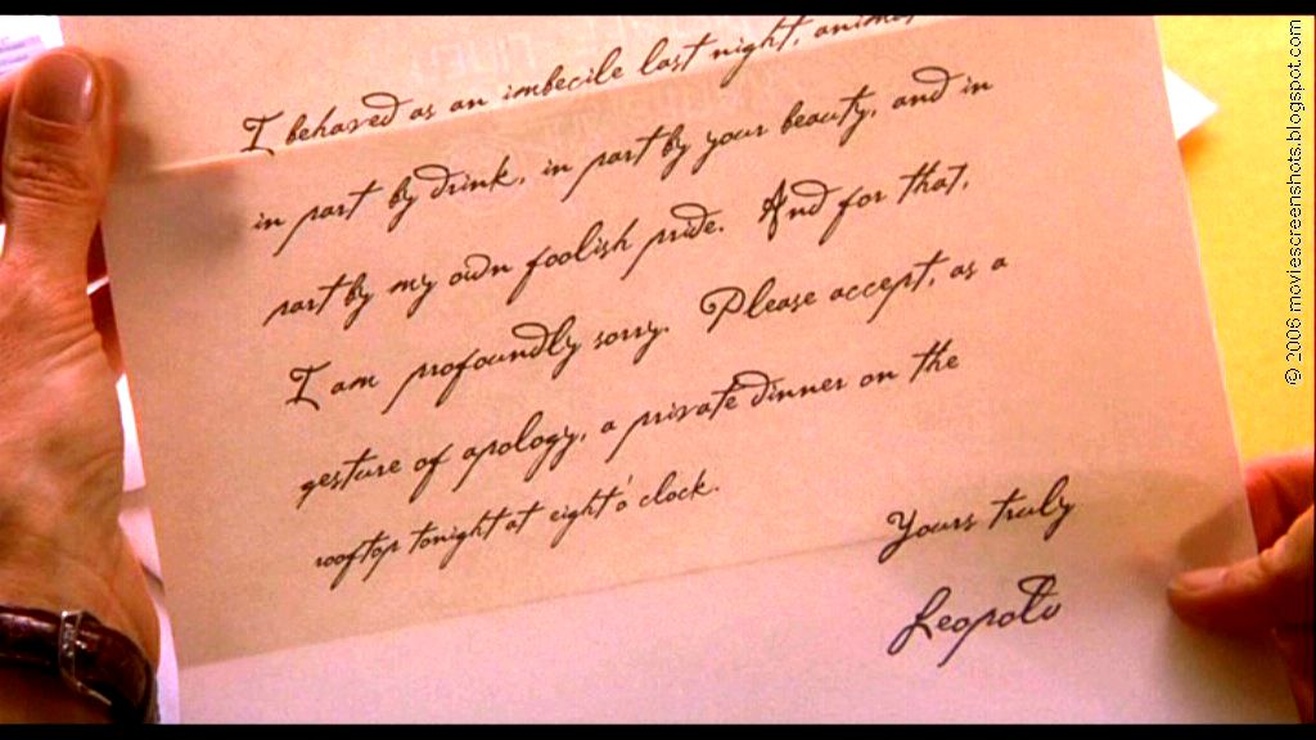 I behaved as an imbecile last night,
in part by drink, in part by your beauty, and in
part by my own foolish pride. And for that,
I am profoundly sorry. Please accept, as a
gesture of apology, a private dinner on the
rooftop tonight at eight o' clock.
Yours truly
Leopold
© 2006 moviescreenshots.blogspot.com